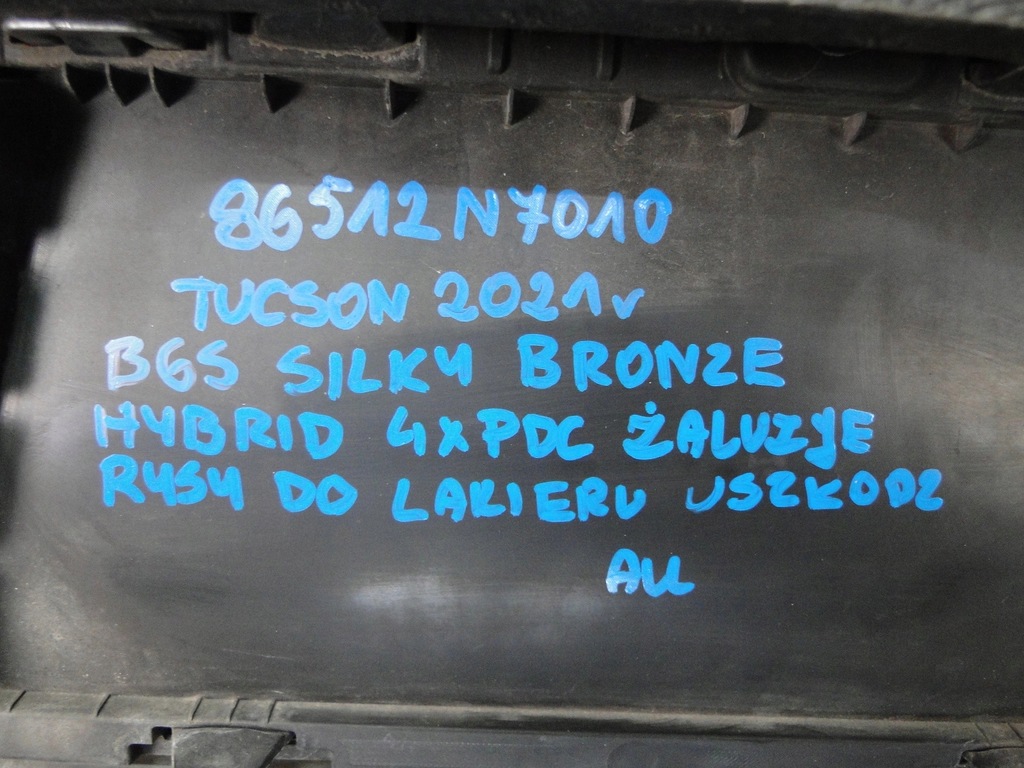 86512N7010
TUCSON 2021r
B6S SILKY BRONZE
HYBRID 4xPDC ŻALUZJE
RYSY DO LAKIERU USZKODZ